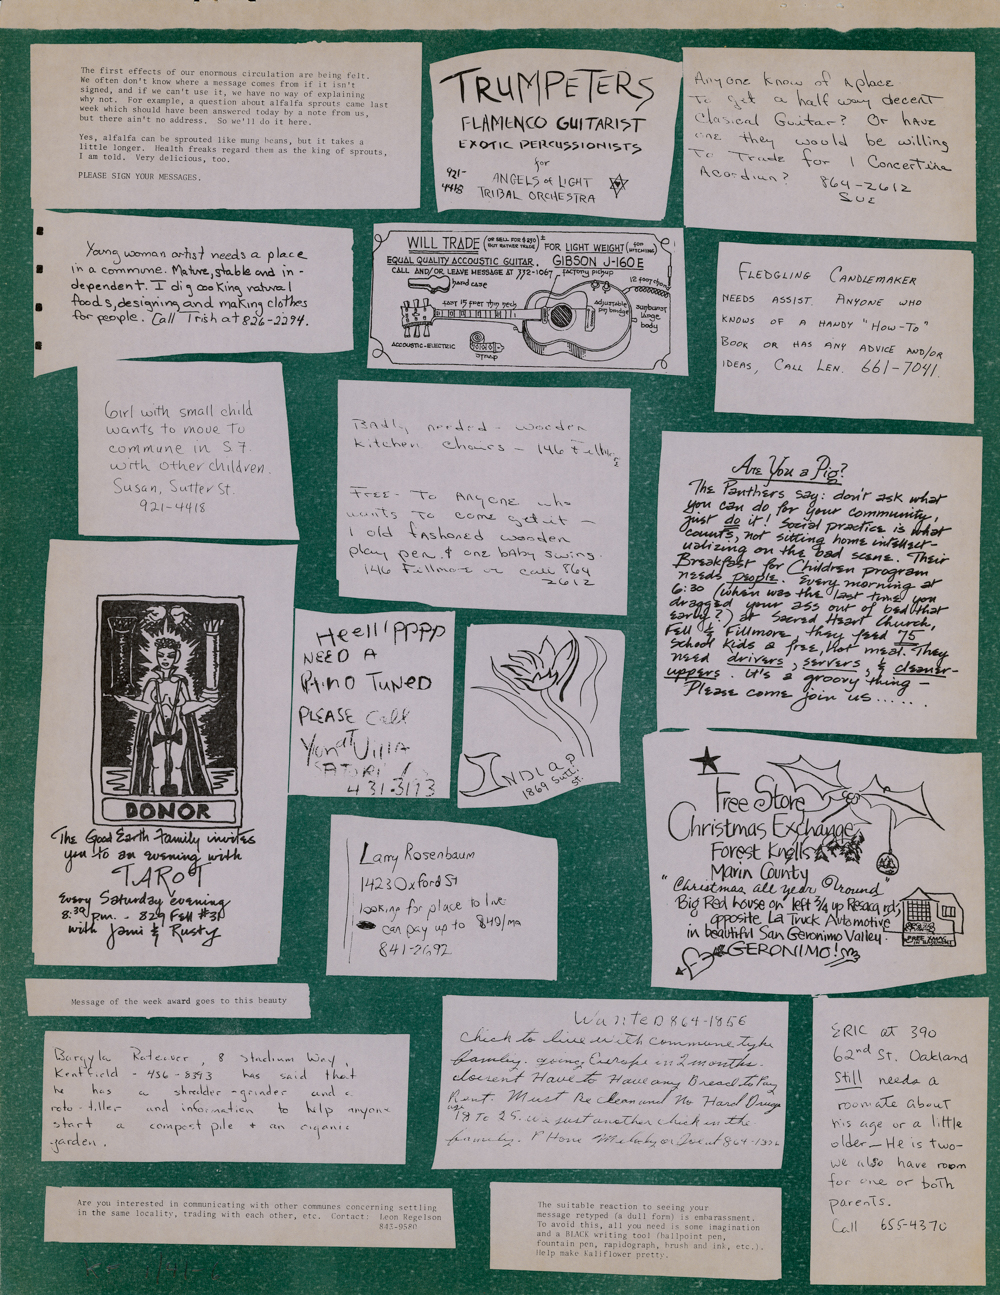 The first effects of our enormous circulation are being felt.
We often don't know where a message comes from if it isn't
signed, and if we can't use it, we have no way of explaining
why not. For example, a question about alfalfa sprouts came last
week which should have been answered today by a note from us,
but there ain't no address. So we'll do it here.
Yes, alfalfa can be sprouted like mung beans, but it takes a
little longer. Health freaks regard them as the king of sprouts,
I am told. Very delicious, too.
PLEASE SIGN YOUR MESSAGES.
TRUMPETERS
FLAMENCO GUITARIST
EXOTIC PERCUSSIONISTS
for
921-
4418
ANGELS of LIGHT
TRIBAL ORCHESTRA
Anyone know of a place
To get a half way decent
Clasical Guitar? Or have
one they would be willing
To Trade for 1 Concertina
Acordian? 864-2612
SUE
Young woman artist needs a place
in a commune. Mature, stable and in-
dependent. I dig cooking natural
foods, designing and making clothes
for people. Call Trish at 826-2294.
WILL TRADE (OR SELL FOR $230 BUT RATHER TRADE) FOR LIGHT WEIGHT (FOR HITCHING)
EQUAL QUALITY ACCOUSTIC GUITAR. GIBSON J-160E
CALL AND/OR LEAVE MESSAGE AT 772-1067
factory pickup
hard case
12 foot chord
fast 15 fret thin neck
adjustable pin bridge
sunburst large body
ACCOUSTIC-ELECTRIC
strap
FLEDGLING CANDLEMAKER
NEEDS ASSIST. ANYONE WHO
KNOWS OF A HANDY "HOW-TO"
BOOK OR HAS ANY ADVICE AND/OR
IDEAS, CALL LEN. 661-7041.
Girl with small child
wants to move to
commune in S.F.
with other children.
Susan, Sutter St.
921-4418
Badly needed - wooden
Kitchen Chairs - 146 Fillmore
FREE - To Anyone who
wants to come get it -
1 old fashoned wooden
play pen & one baby swing.
146 Fillmore or call 864
2612
Are You a Pig?
The Panthers say: don't ask what
you can do for your community,
just do it! Social practice is what
counts, not sitting home intellect-
ualizing on the bad scene. Their
Breakfast for Children program
needs people. Every morning at
6:30 (when was the last time you
dragged your ass out of bed that
early?) at Sacred Heart Church,
Fell & Fillmore, they feed 75
school kids a free, hot meal. They
need drivers, servers, & cleaner-
uppers. It's a groovy thing -
Please come join us......
DONOR
The Good Earth Family invites
you to an evening with
TAROT
Every Saturday evening
8:30 pm. - 829 Fell #31
with Jami & Rusty
Heelllpppp
NEED A
PIANO TUNED
PLEASE Call
Villa
SATORI
431-3113
INDIA
1869 Sutt.
St.
Free Store
Christmas Exchange
Forest Knolls
Marin County
"Christmas all year 'Round"
Big Red house on left 3/4 up Resaca rd,
opposite La Truck Automotive
in beautiful San Geronimo Valley.
GERONIMO!
Larry Rosenbaum
1423 Oxford St
looking for place to live
can pay up to $40/mo
841-2692
Message of the week award goes to this beauty
Bargyla Rateaver, 8 Stadium Way,
Kentfield - 456-8393 has said that
he has a shredder-grinder and a
roto-tiller and information to help anyone
start a compost pile + an organic
garden.
Wanted 864-1856
Chick to live with commune type
family. going Europe in 2 months.
doesent Have to Have any Bread to Pay
Rent. Must Be Clean and No Hard Drugs
age 18 to 25. not just another chick in the
family. Phone Melody or
Are you interested in communicating with other communes concerning settling
in the same locality, trading with each other, etc. Contact: Leon Regelson
843-9580
The suitable reaction to seeing your
message retyped (a dull form) is embarassment.
To avoid this, all you need is some imagination
and a BLACK writing tool (ballpoint pen,
fountain pen, rapidograph, brush and ink, etc.).
Help make Kaliflower pretty.
ERIC at 390
62nd St. Oakland
Still needs a
roomate about
his age or a little
older - He is two -
we also have room
for one or both
parents.
Call 655-4370